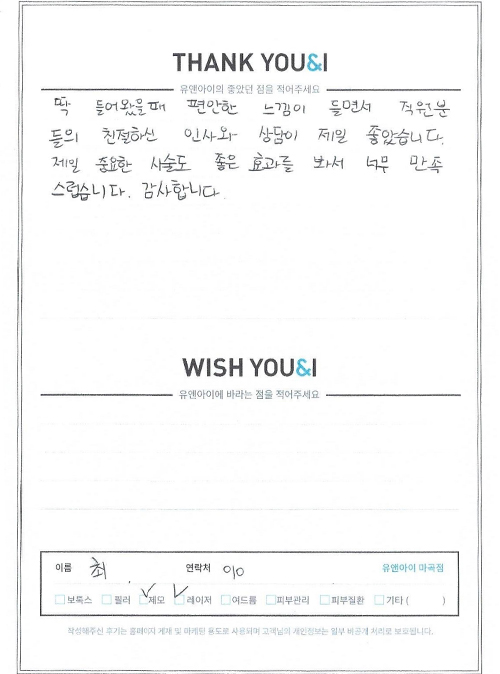 THANK YOU&I
유앤아이의 좋았던 점을 적어주세요
딱 들어왔을때 편안한 느낌이 들면서 직원분
들의 친절하신 인사와 상담이 제일 좋았습니다.
제일 중요한 시술도 좋은 효과를 봐서 너무 만족
스럽습니다. 감사합니다.
WISH YOU&I
유앤아이에 바라는 점을 적어주세요
이름 최 연락처 010 유앤아이 마곡점
보톡스 필러 제모 레이저 여드름 피부관리 피부질환 기타 ( )
작성해주신 후기는 홈페이지 게재 및 마케팅 용도로 사용되며 고객님의 개인정보는 일부 비공개 처리로 보호됩니다.